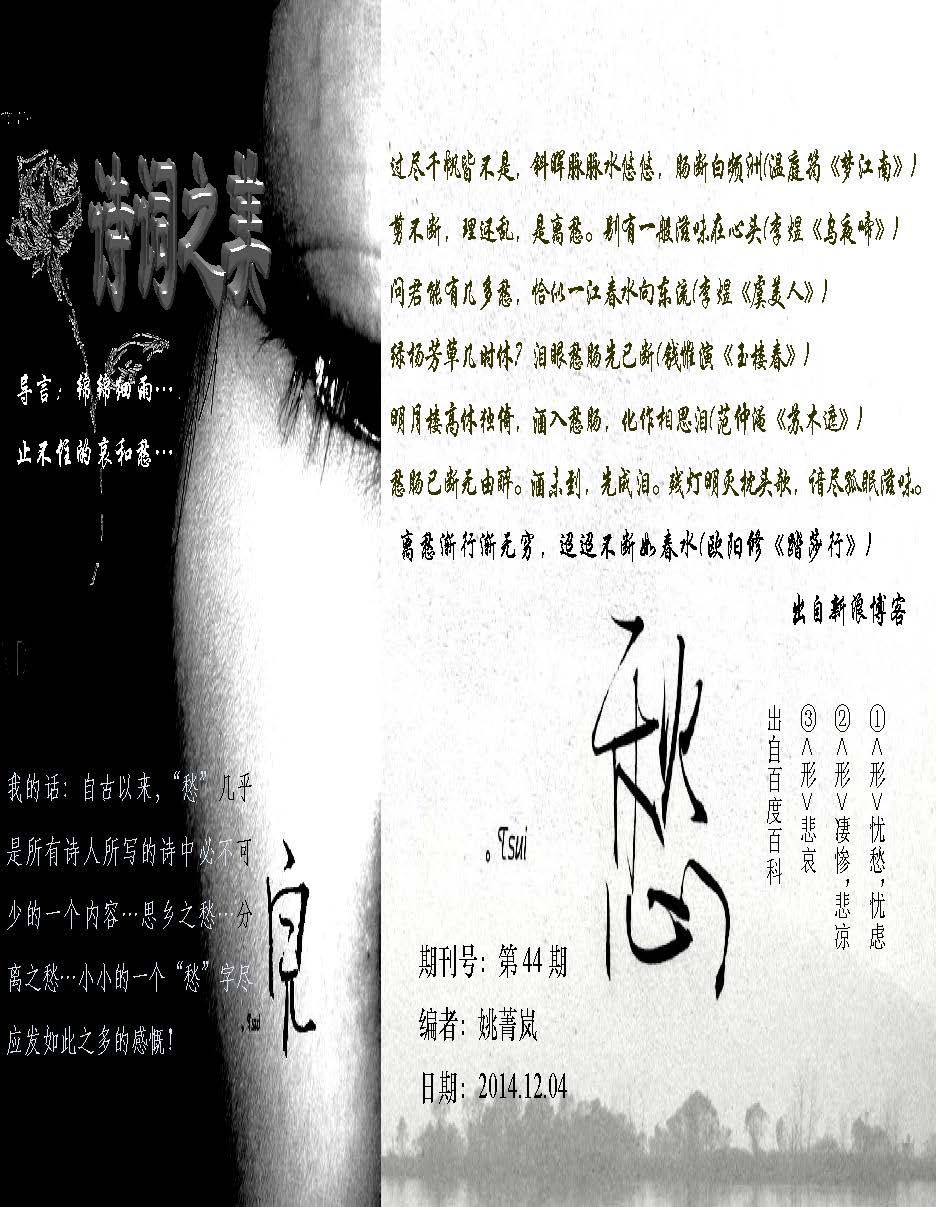 诗词之美
导言：绵绵细雨…
止不住的哀和愁…
我的话：自古以来，“愁”几乎
是所有诗人所写的诗中必不可
少的一个内容…思乡之愁…分
离之愁…小小的一个“愁”字尽
应发如此之多的感慨！
Tsui
过尽千帆皆不是，斜晖脉脉水悠悠，肠断白频洲(温庭筠《梦江南》)
剪不断，理还乱，是离愁。别有一般滋味在心头(李煜《乌夜啼》)
问君能有几多愁，恰似一江春水向东流(李煜《虞美人》)
绿杨芳草几时休？泪眼愁肠先已断(钱惟演《玉楼春》)
明月楼高休独倚，酒入愁肠，化作相思泪(范仲淹《苏木遮》)
愁肠已断无由醉。酒未到，先成泪。残灯明灭枕头欹，谙尽孤眠滋味。
离愁渐行渐无穷，迢迢不断如春水(欧阳修《踏莎行》)
出自新浪博客
愁
。Tsui
①<形>忧愁，忧虑
②<形>凄惨，悲凉
③<形>悲哀
出自百度百科
期刊号：第44期
编者：姚菁岚
日期：2014.12.04